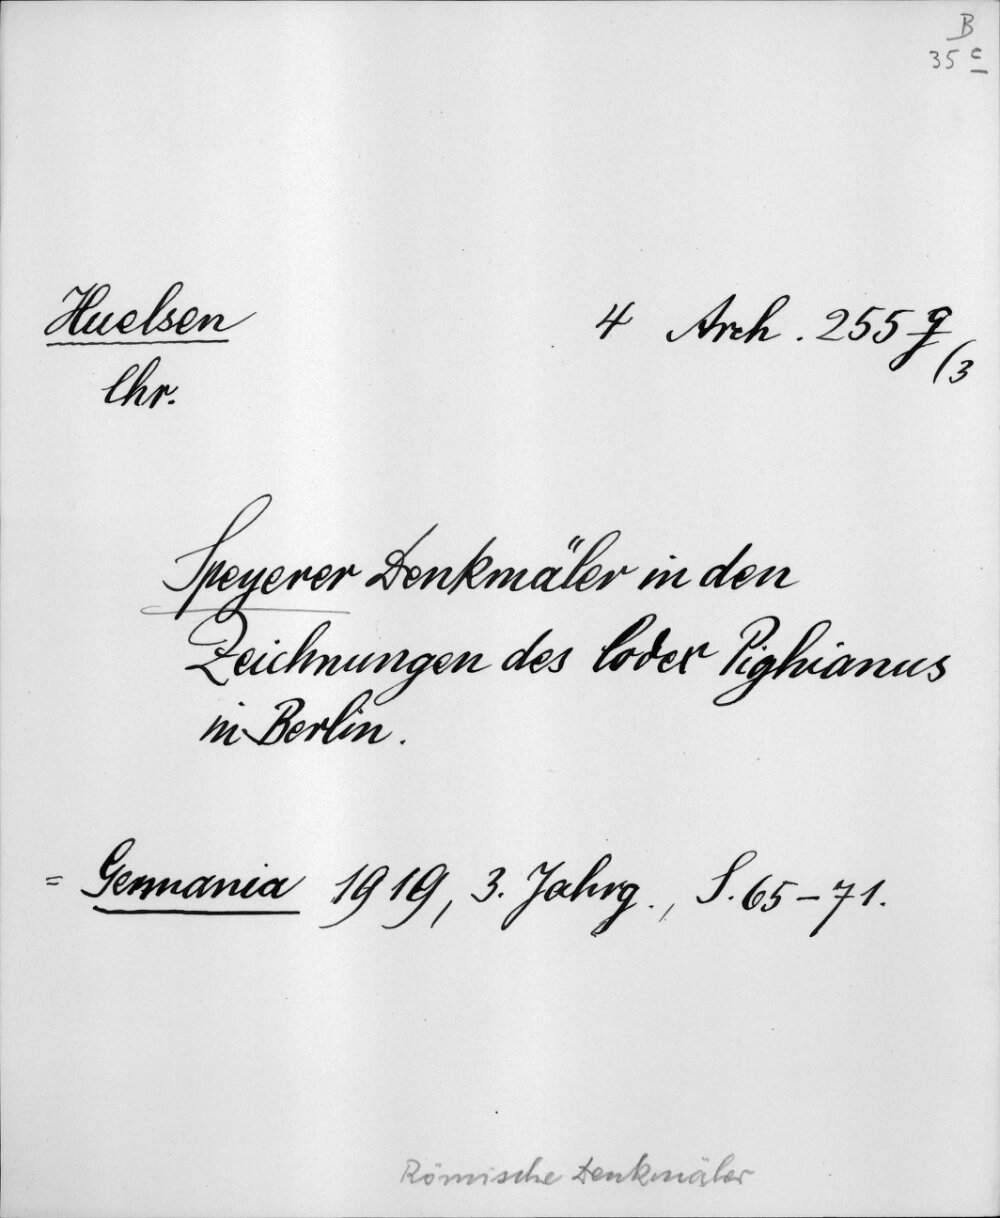 B
35 c
Huelsen
4 Arch. 255 g
(3
Chr.
Speyerer Denkmäler in den
Zeichnungen des Codex Pighianus
in Berlin.
= Germania 1919, 3. Jahrg., S. 65-71.
Römische Denkmäler